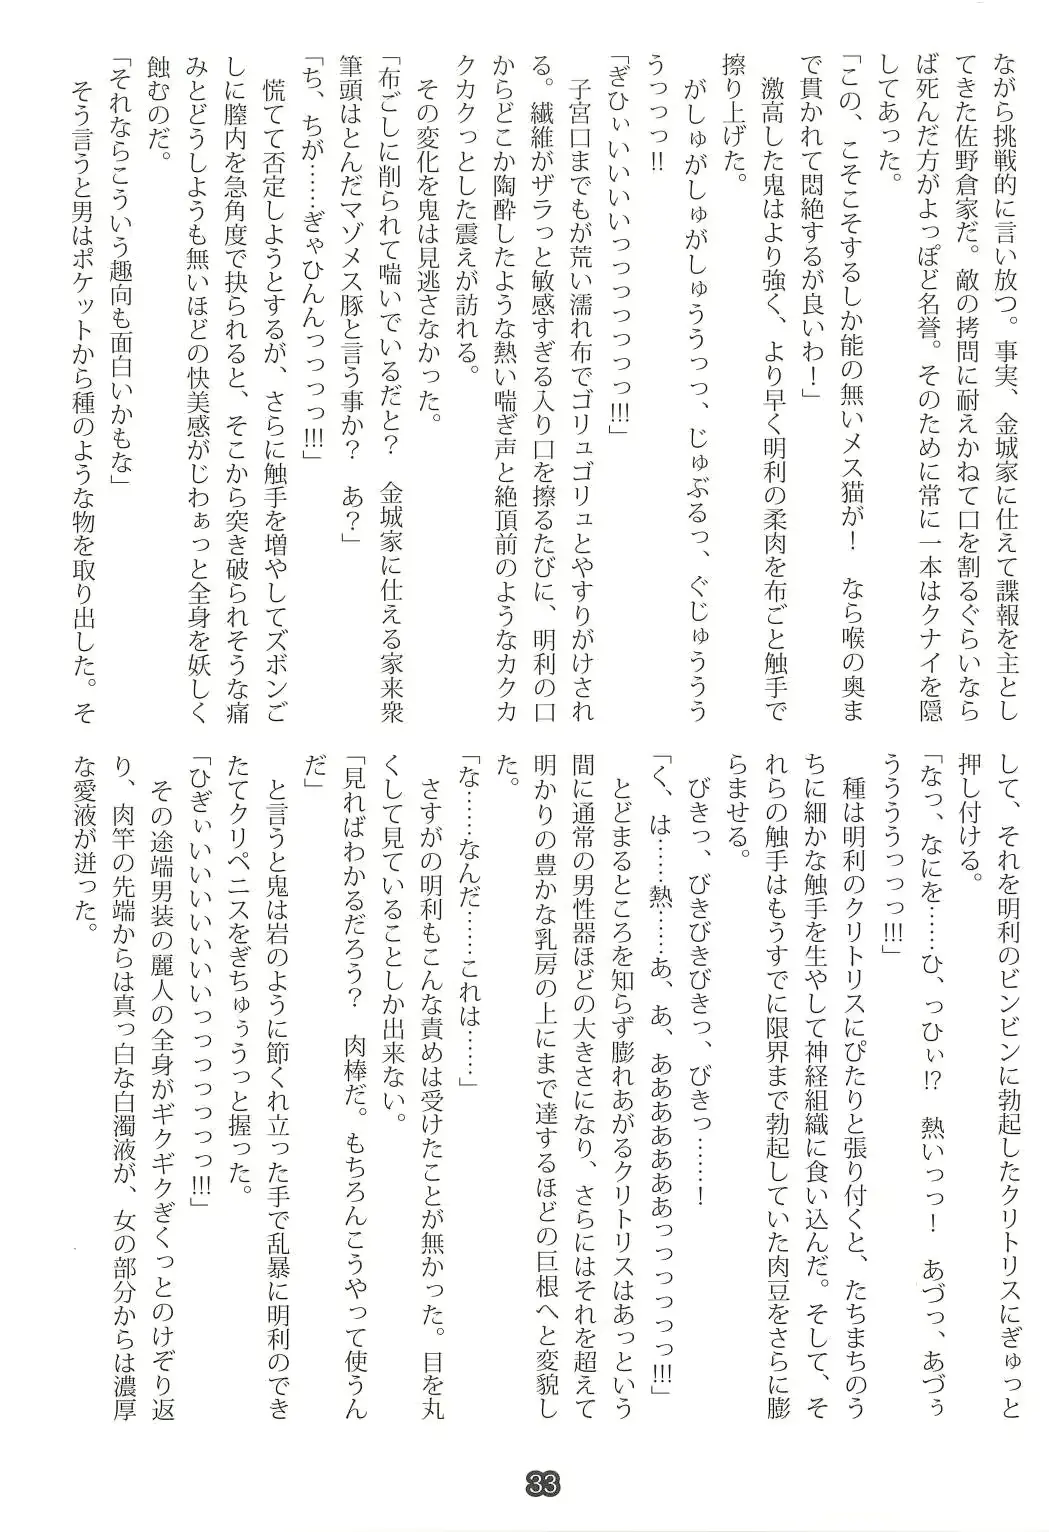 ながら挑戦的に言い放つ。事実、金城家に仕えて諜報を主とし
てきた佐野倉家だ。敵の拷問に耐えかねて口を割るぐらいなら
ば死んだ方がよっぽど名誉。そのために常に一本はクナイを隠
してあった。
「この、こそこそするしか能の無いメス猫が！　なら喉の奥ま
で貫かれて悶絶するが良いわ！」
激高した鬼はより強く、より早く明利の柔肉を布ごと触手で
擦り上げた。
がしゅがしゅがしゅううっっ、じゅぶるっ、ぐじゅううう
うっっっ!!
「ぎひぃいいいいっっっっっっ!!!」
子宮口までもが荒い濡れ布でゴリュゴリュとやすりがけされ
る。繊維がザラっと敏感すぎる入り口を擦るたびに、明利の口
からどこか陶酔したような熱い喘ぎ声と絶頂前のようなカクカ
クカクっとした震えが訪れる。
その変化を鬼は見逃さなかった。
「布ごしに削られて喘いでいるだと？　金城家に仕える家来衆
筆頭はとんだマゾメス豚と言う事か？　あ？」
「ち、ちが……ぎゃひんんっっっっ!!!」
慌てて否定しようとするが、さらに触手を増やしてズボンご
しに膣内を急角度で抉られると、そこから突き破られそうな痛
みとどうしようも無いほどの快美感がじわぁっと全身を妖しく
蝕むのだ。
「それならこういう趣向も面白いかもな」
そう言うと男はポケットから種のような物を取り出した。そ
して、それを明利のビンビンに勃起したクリトリスにぎゅっと
押し付ける。
「なっ、なにを……ひ、っひぃ!?　熱いっっ！　あづっ、あづぅ
ううううっっっ!!!」
種は明利のクリトリスにぴたりと張り付くと、たちまちのう
ちに細かな触手を生やして神経組織に食い込んだ。そして、そ
れらの触手はもうすでに限界まで勃起していた肉豆をさらに膨
らませる。
びきっ、びきびきびきっ、びきっ……！
「く、は……熱……あ、あ、ああああああああっっっっっっ!!!」
とどまるところを知らず膨れあがるクリトリスはあっという
間に通常の男性器ほどの大きさになり、さらにはそれを超えて
明かりの豊かな乳房の上にまで達するほどの巨根へと変貌し
た。
「な……なんだ……これは……」
さすがの明利もこんな責めは受けたことが無かった。目を丸
くして見ていることしか出来ない。
「見ればわかるだろう？　肉棒だ。もちろんこうやって使うん
だ」
と言うと鬼は岩のように節くれ立った手で乱暴に明利のでき
たてクリペニスをぎちゅぅうっと握った。
「ひぎぃいいいいいいいっっっっっっっ!!!」
その途端男装の麗人の全身がギクギクぎくっとのけぞり返
り、肉竿の先端からは真っ白な白濁液が、女の部分からは濃厚
な愛液が迸った。
33